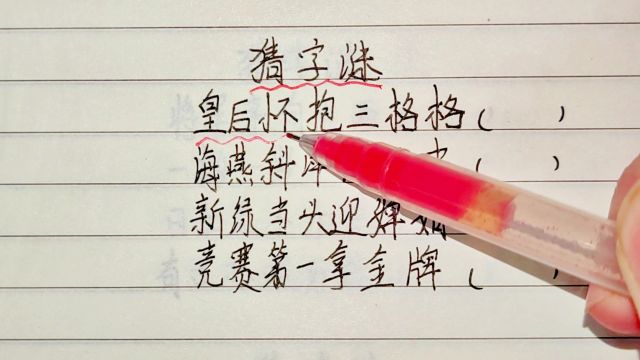 猜字谜
皇后怀抱三格格( )
海燕斜 ( )
新绿当头迎
竞赛第一拿金牌( )